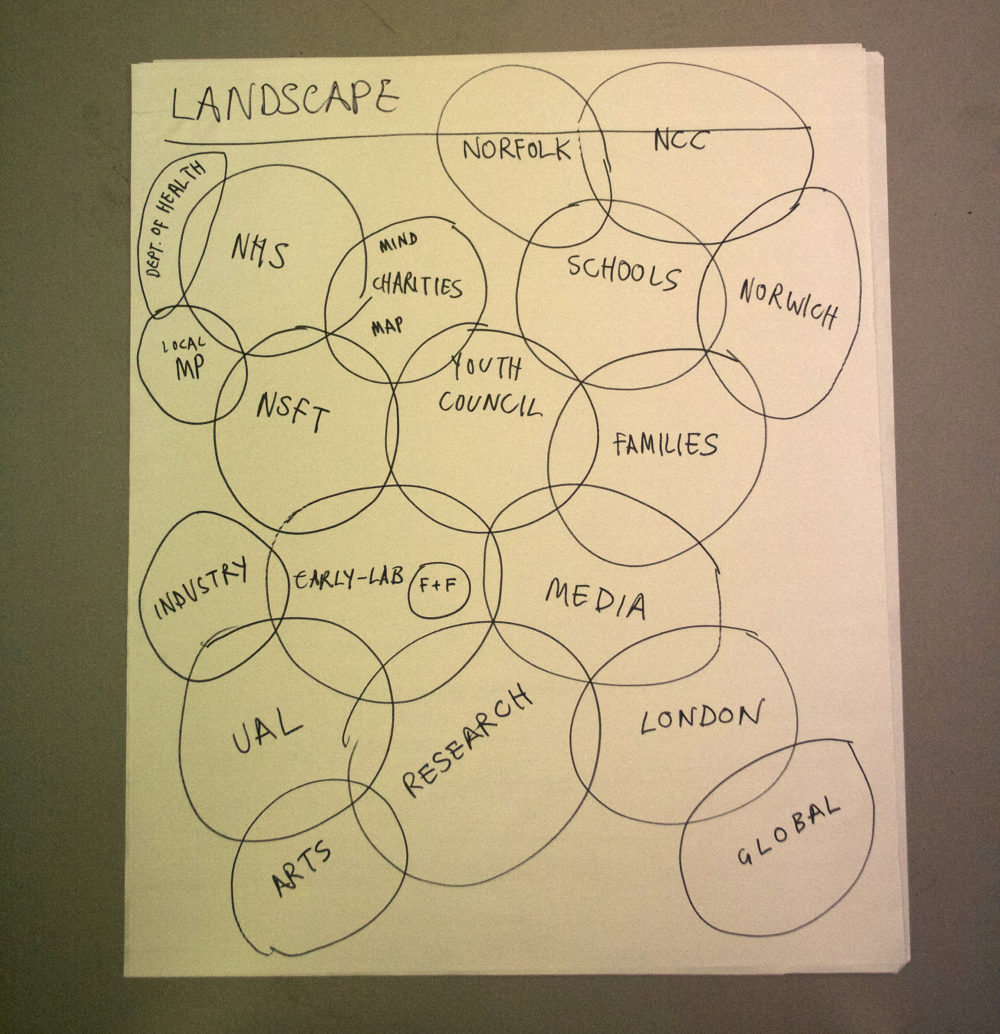 LANDSCAPE
NORFOLK
NCC
DEPT. OF HEALTH
NHS
MIND
CHARITIES
MAP
SCHOOLS
NORWICH
LOCAL
MP
NSFT
YOUTH
COUNCIL
FAMILIES
INDUSTRY
EARLY-LAB
F+F
MEDIA
UAL
RESEARCH
LONDON
ARTS
GLOBAL